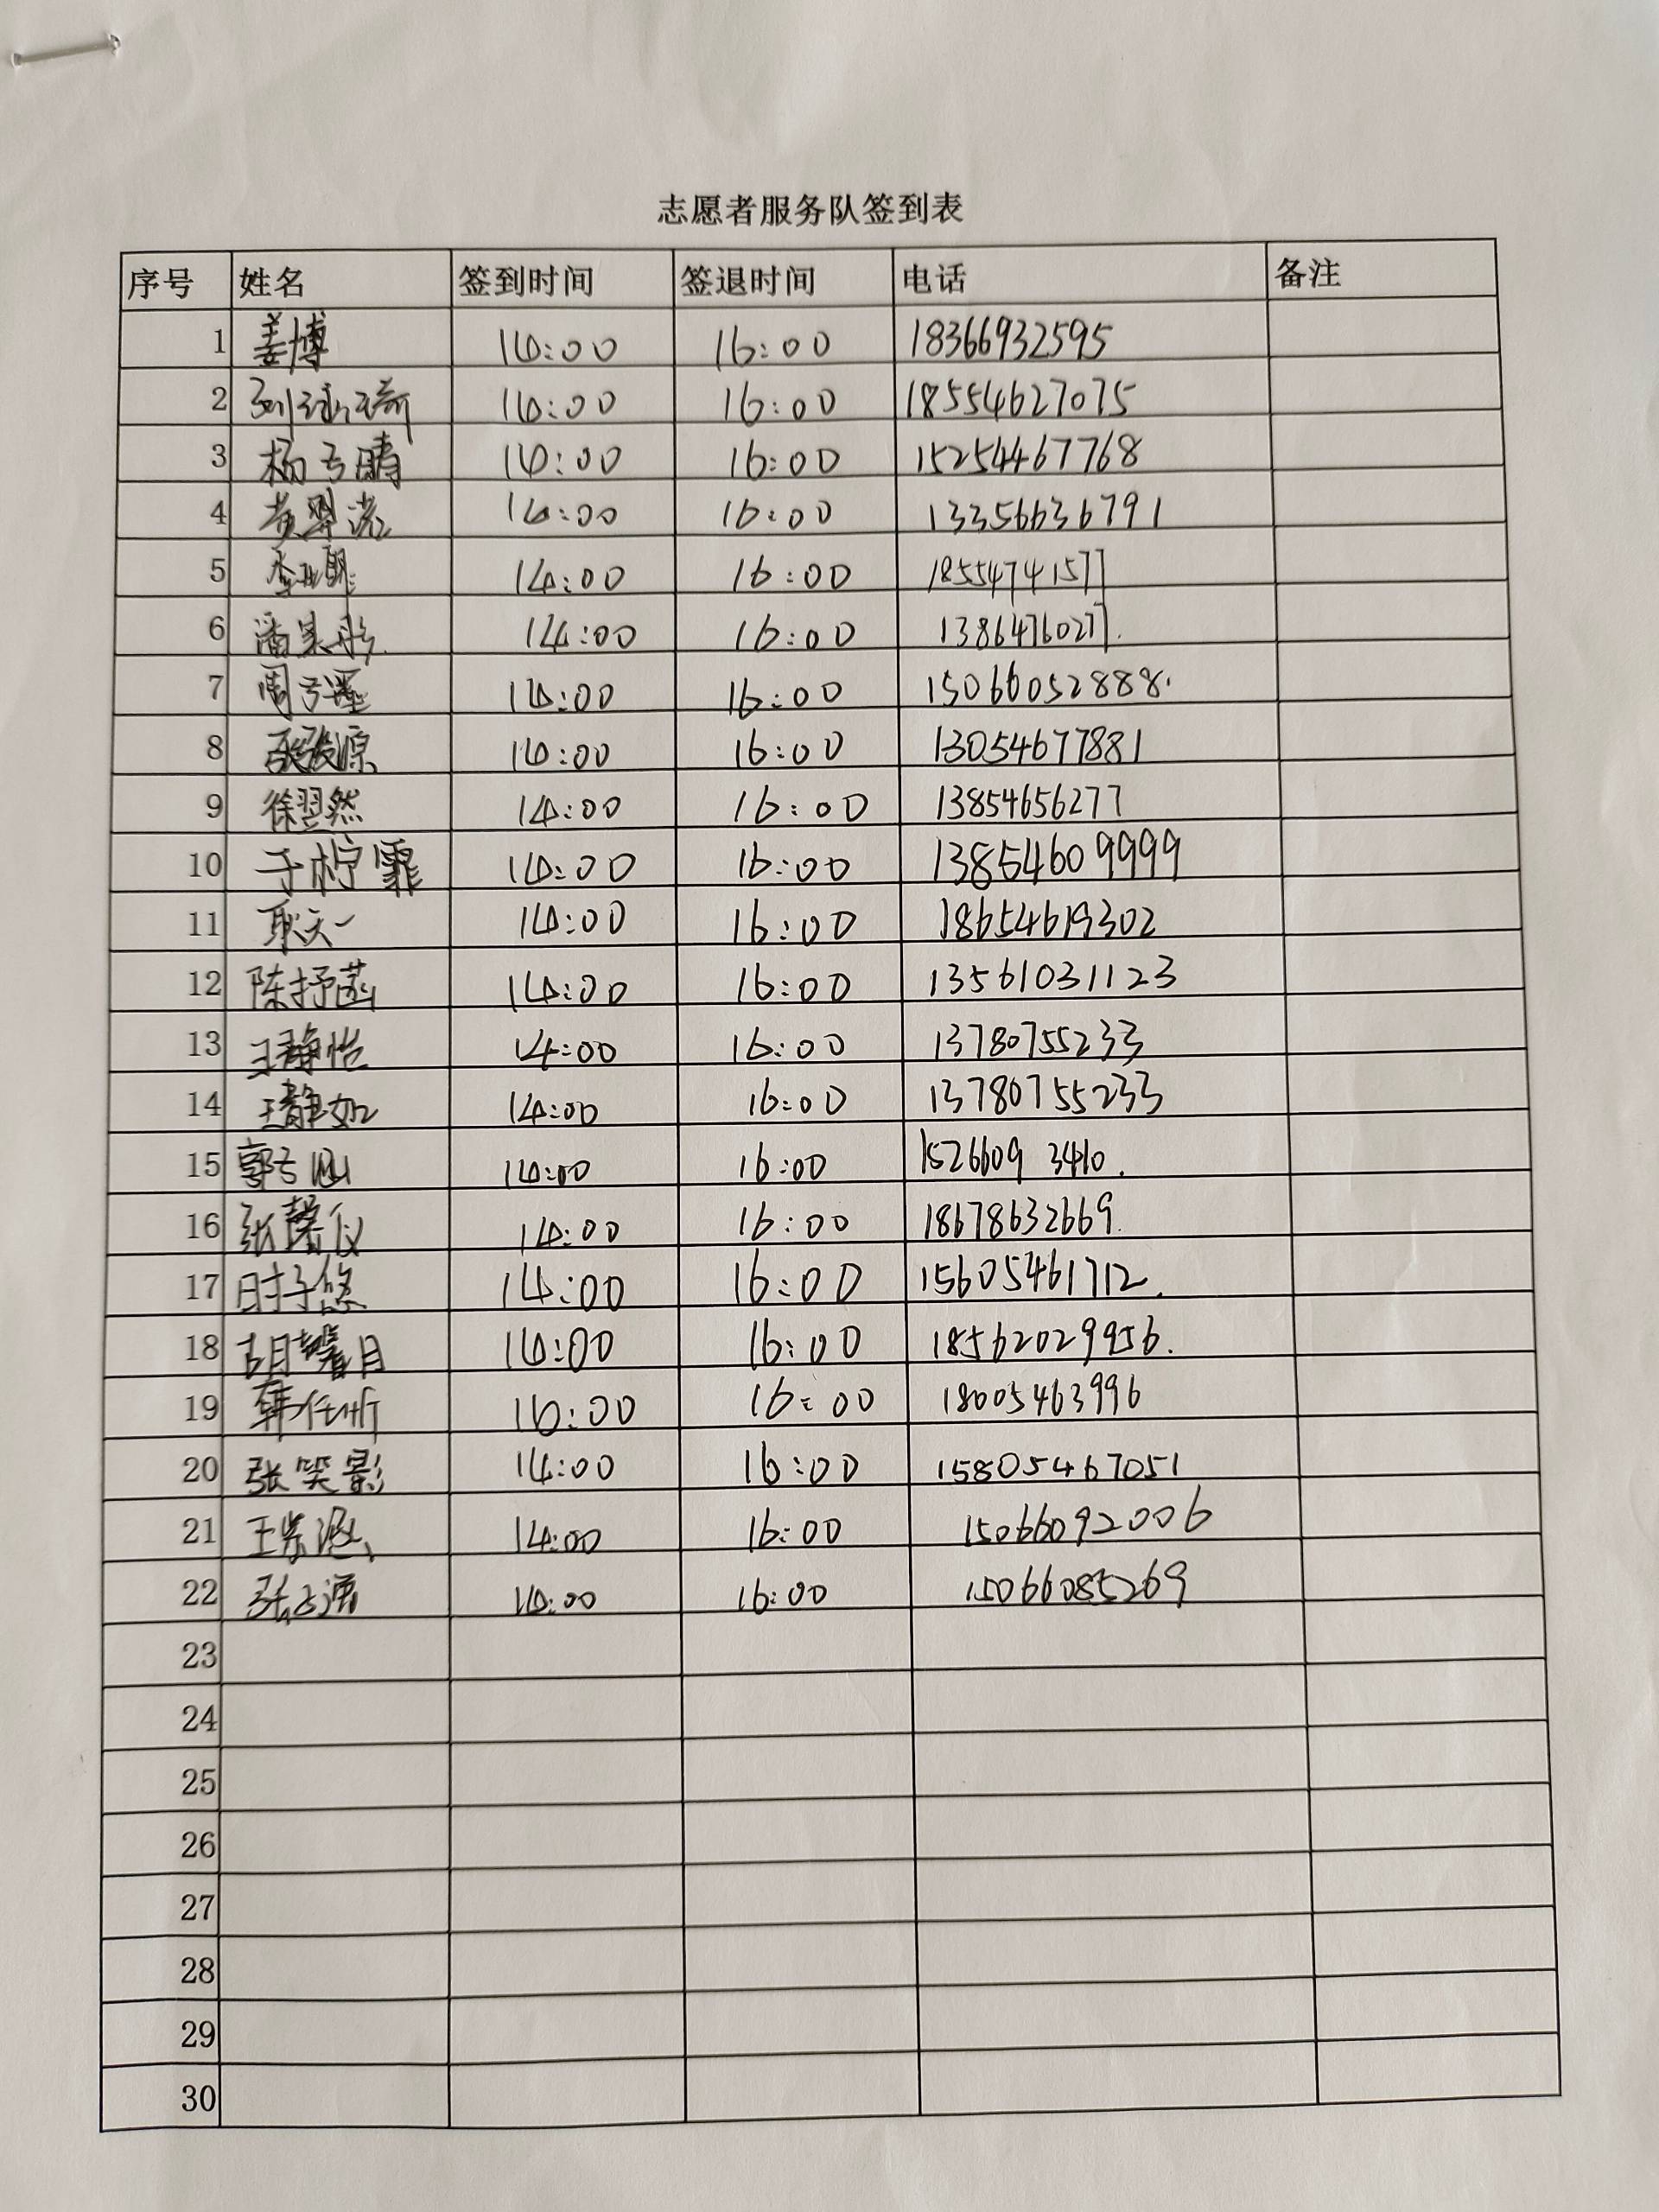 志愿者服务队签到表
序号 姓名 签到时间 签退时间 电话 备注
1 姜博 14:00 16:00 18366932595
2 14:00 16:00 18554627075
3 杨子晴 14:00 16:00 15254467768
4 黄 14:00 16:00 13356636791
5 李 14:00 16:00 18554741577
6 潘昊彤 14:00 16:00 13864760277.
7 周子瑾 14:00 16:00 15066052888.
8 源 14:00 16:00 13054677881
9 徐翌然 14:00 16:00 13854656277
10 于柠霏 14:00 16:00 13854609999
11 耿天一 14:00 16:00 18654619302
12 陈抒菡 14:00 16:00 13561031123
13 王静怡 14:00 16:00 13780755233
14 王静如 14:00 16:00 13780755233
15 郭子涵 14:00 16:00 1526609 3410.
16 张馨仪 14:00 16:00 18678632669.
17 时子悠 14:00 16:00 15605461712.
18 胡馨月 14:00 16:00 18562029956.
19 韩 16:00 16:00 18005463996
20 张笑影 14:00 16:00 15805467051
21 王紫涵 14:00 16:00 15066092006
22 张 14:00 16:00 15066085269
23
24
25
26
27
28
29
30